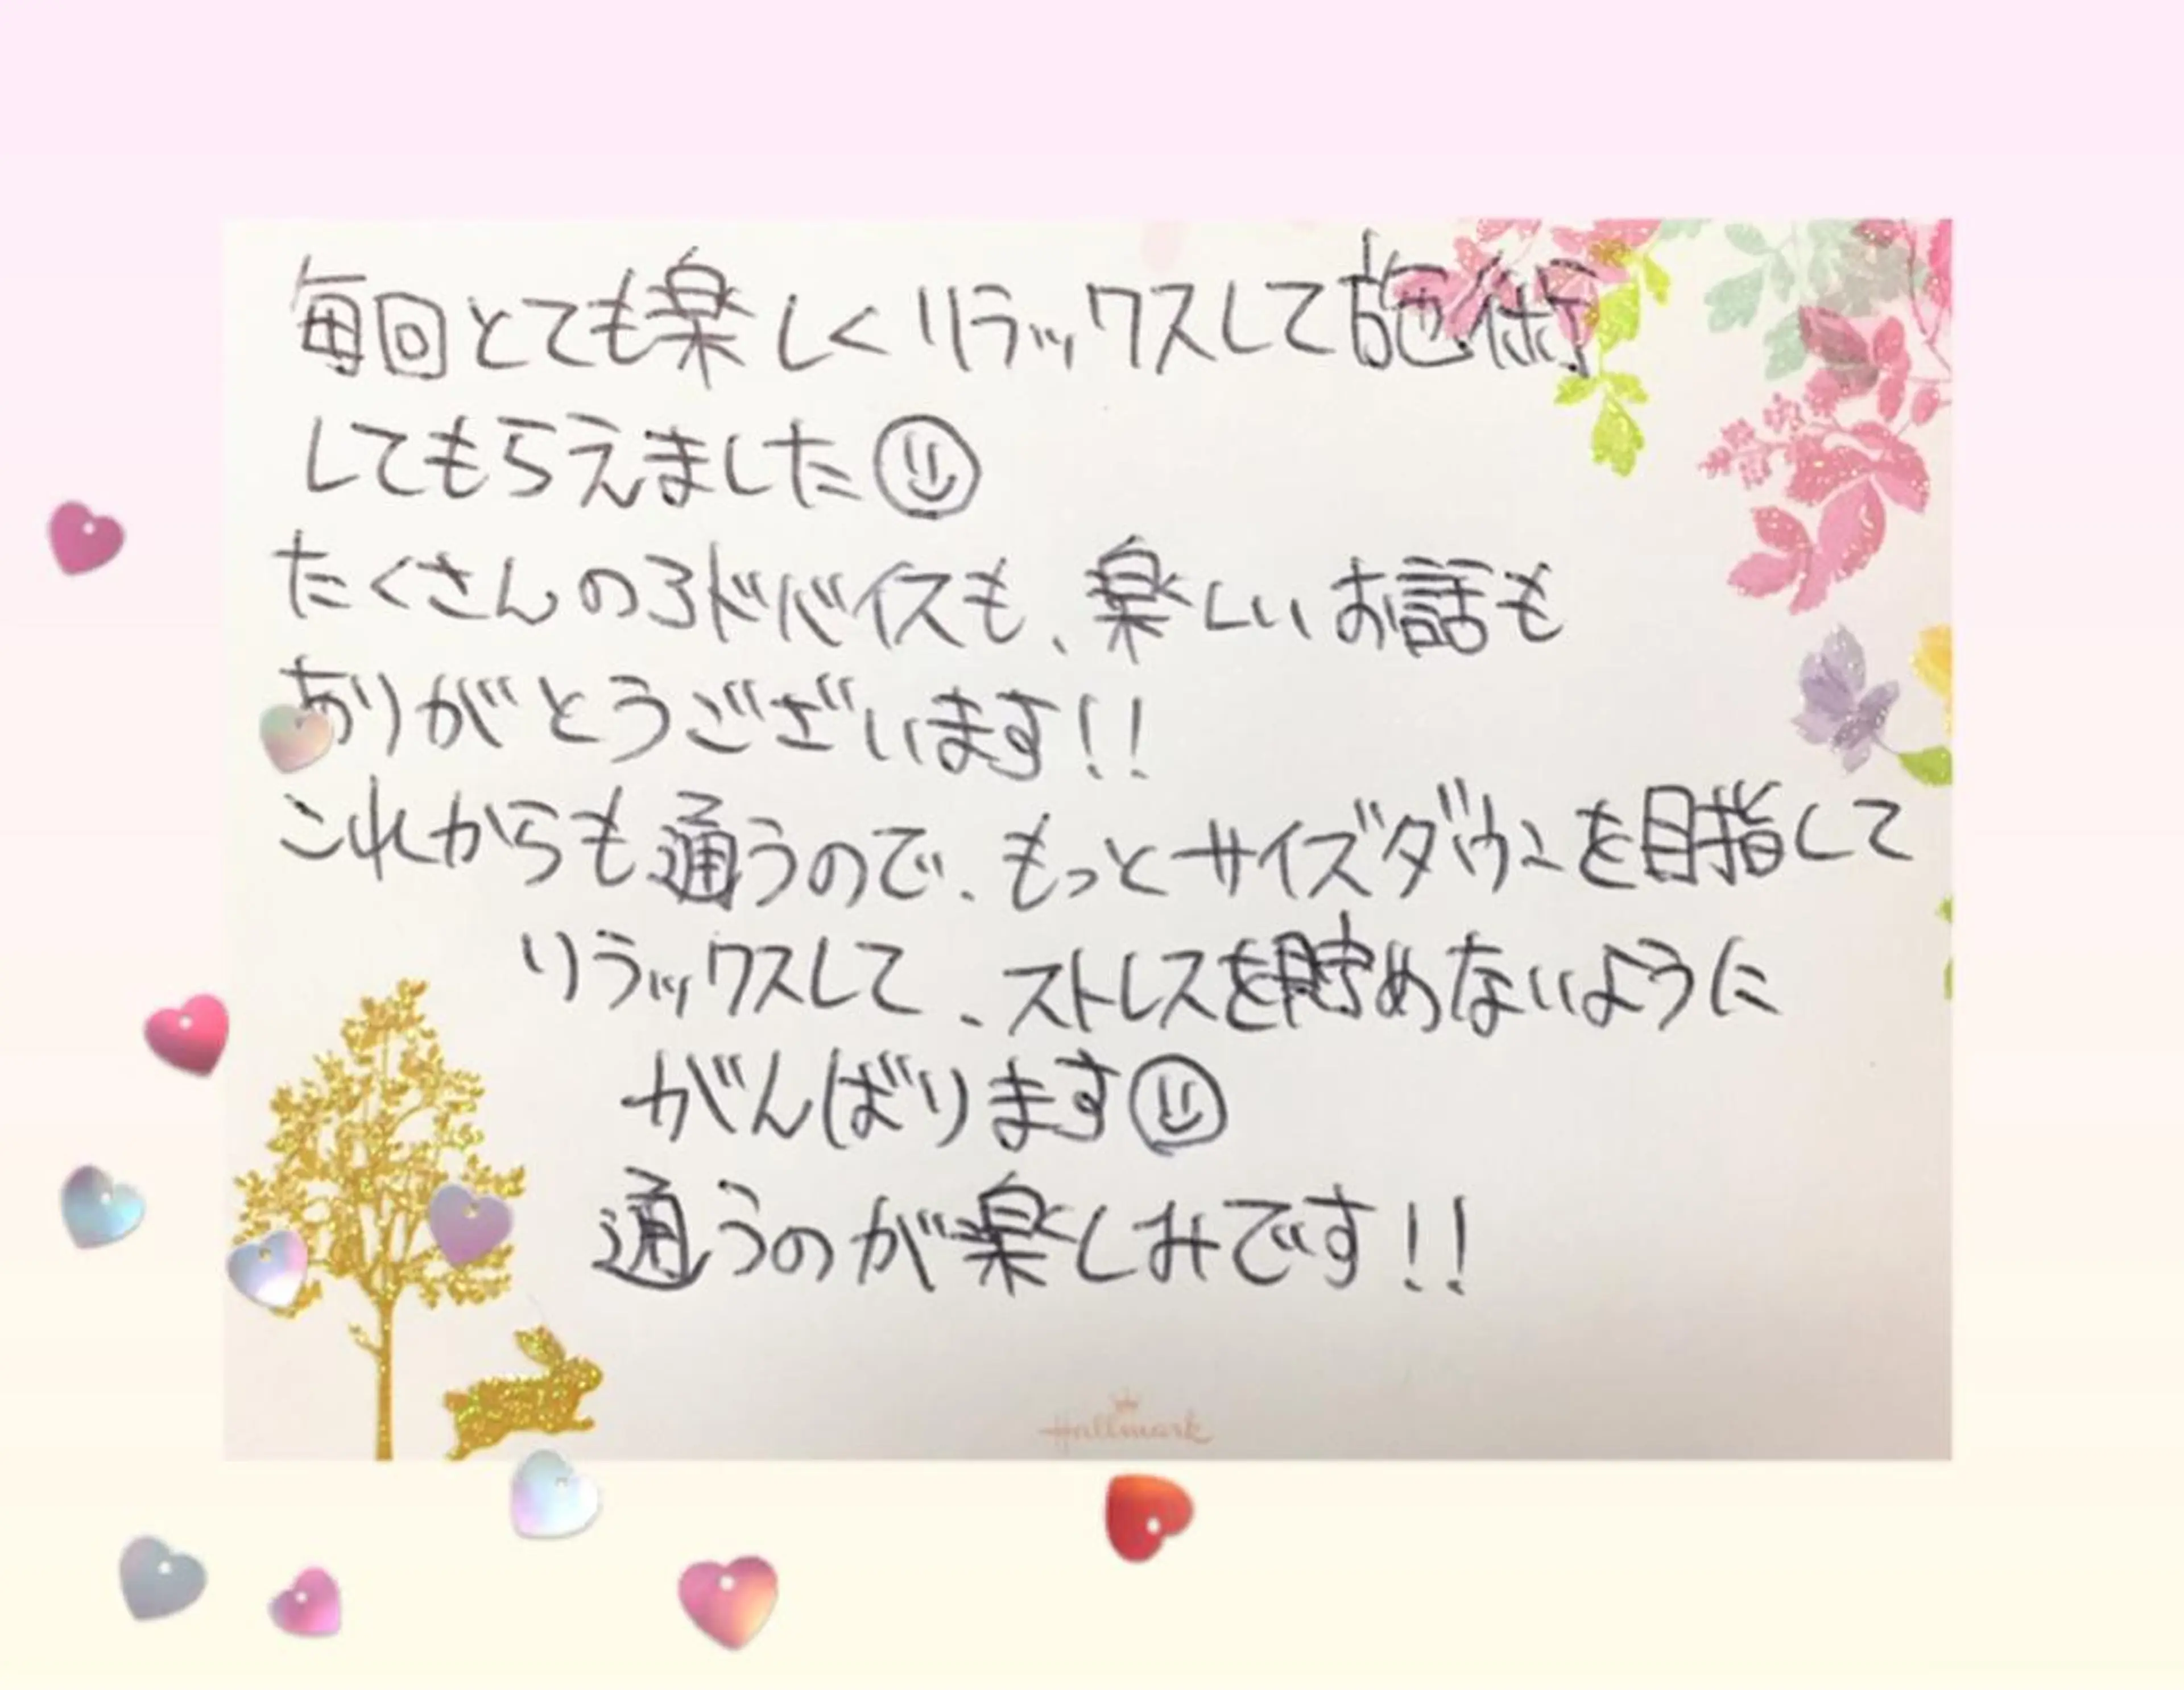 毎回とても楽しくリラックスして施術
してもらえました☺
たくさんのアドバイスも、楽しいお話も
ありがとうございます!!
これからも通うので、もっとサイズダウンを目指して
リラックスして、ストレスを貯めないように
がんばります☺
通うのが楽しみです!!
Hallmark